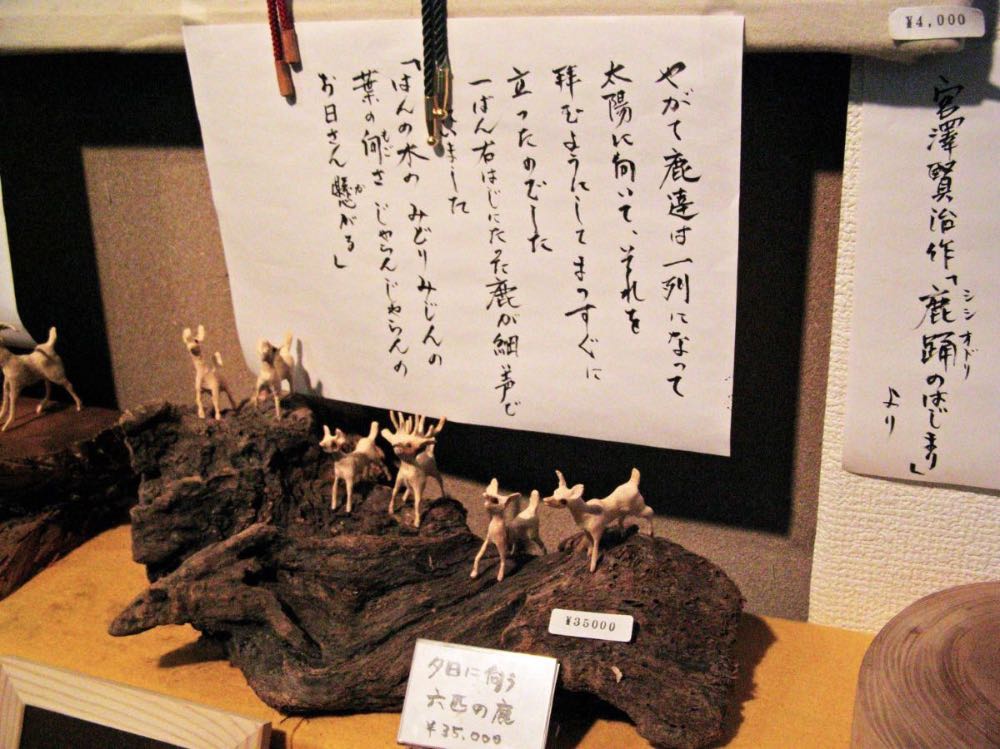 ¥4,000
宮澤賢治作「鹿踊のはじまり」
シシオドリ
より
やがて鹿達は一列になって
太陽に向いて、それを
拝むようにしてまっすぐに
立ったのでした
一ばん右はじにたった鹿が細い声で
いました
「はんの木の みどりみじんの
葉の向さ じゃらんじゃらんの
もご
お日さん懸がる」
か
¥35000
夕日に向う
六匹の鹿
¥35,000